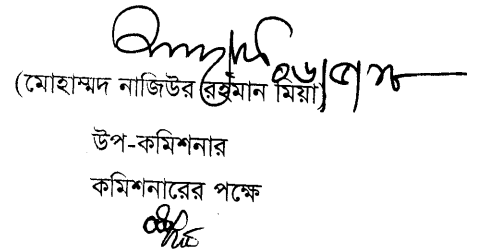 (মোহাম্মদ নাজিউর রহমান মিয়া)
উপ-কমিশনার
কমিশনারের পক্ষে